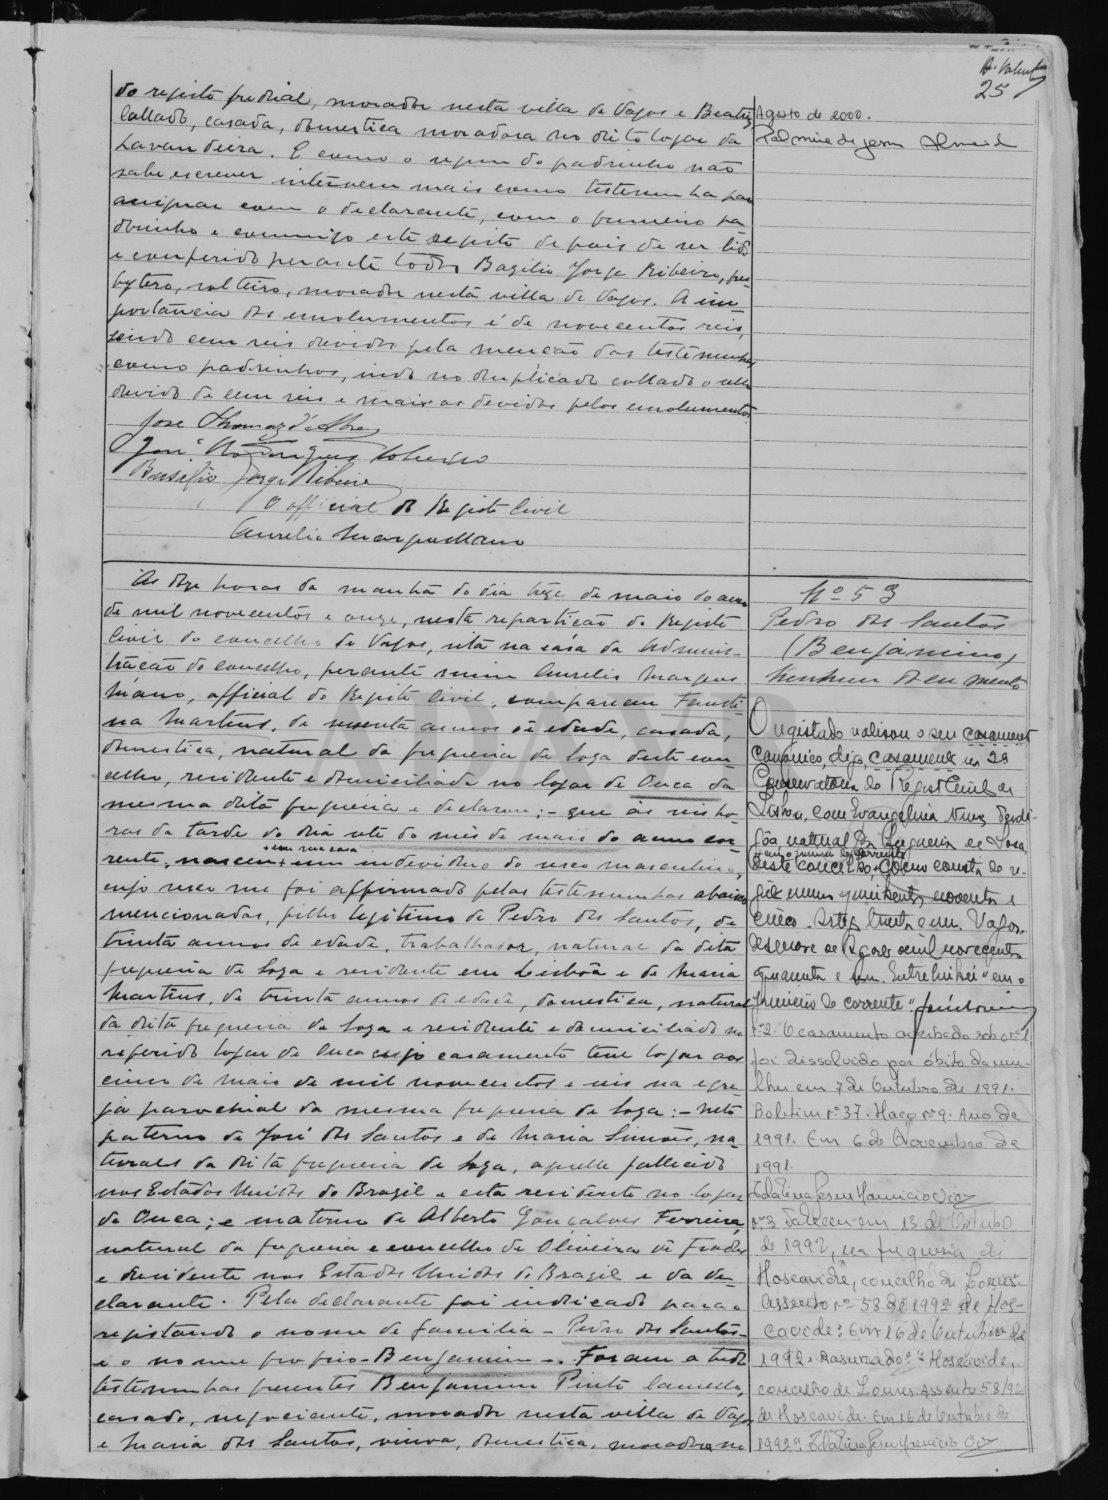 25
do registo predial, morador nesta villa de Vagos e Beatriz
Callado, casada, domestica moradora no dito logar da
Lavandeira. E como o padrinho não
sabe escrever intervem mais como testemunha para
assignar com o declarante, com o primeiro pa-
drinho e commigo este registo depois de ser lido
e conferido perante todos Bazilio Jorge Ribeiro, pres-
bytero, solteiro, morador nesta villa de Vagos. A im-
portancia dos emolumentos é de novecentos reis,
sendo cem reis devidos pela menção das testemunhas
como padrinhos, indo no duplicado collado o sello
devido de cem reis e mais os devidos pelos emolumentos
José Thomaz d'Abreu
José Rodrigues
Basilio Jorge Ribeiro
O official do Registo Civil
Aurelio Marques Mano
Agosto de 2000.
Palmira de Jesus Almeida
Às onze horas da manhã do dia treze de maio do anno
de mil novecentos e onze, nesta repartição do Registo
Civil do concelho de Vagos, sita na casa da Adminis-
tração do concelho, perante mim Aurelio Marques
Mano, official do Registo Civil, compareceu Fausti-
na Martins, de sessenta annos de edade, casada,
domestica, natural da freguesia de Soza deste con-
celho, residente e domiciliada no logar de Ouca da
mesma dita freguesia e declarou: - que ás oito ho-
ras da tarde do dia sete do mês de maio do anno cor-
rente, nasceu um individuo do sexo masculino,
cujo sexo me foi affirmado pelas testemunhas abaixo
mencionadas, filho legitimo de Pedro dos Santos, de
trinta annos de edade, trabalhador, natural da dita
freguesia de Soza e residente em Lisboa e de Maria
Martins, de trinta annos de edade, domestica, natural
da dita freguesia de Soza e residente e domiciliada no
referido logar de Ouca cujo casamento teve logar aos
cinco de maio de mil novecentos e seis na egre-
ja parochial da mesma freguesia de Soza: - neto
paterno de José dos Santos e de Maria Simões, na-
turaes da dita freguesia de Soza, aquelle fallecido
nos Estados Unidos do Brazil e esta residente no logar
de Ouca; e materno de Alberto Gonçalves Ferreira,
natural da freguesia e concelho de Oliveira de Frades
e residente nos Estados Unidos do Brazil e da de-
clarante. Pela declarante foi indicado para o
registando o nome de familia - Pedro dos Santos -
e o nome proprio - Benjamim -. Foram a tudo
testemunhas presentes Benjamim Pinto Camello,
casado, negociante, morador nesta villa de Vagos
e Maria dos Santos, viuva, domestica, moradora no
Nº 53
Pedro dos Santos
(Benjamim)
Nenhum documento
O registado realisou o seu casamento
canonico, digo, casamento na 2ª
Conservatoria do Registo Civil de
Lisboa, com Evangelina Nunes
natural da freguesia de Soza,
deste concelho, como consta do re-
gisto numero quinhentos noventa e
cinco. Vagos,
dezenove de Agosto de mil novecentos
quarenta e um. Entrelinhei "em o
primeiro do corrente".
Nº 2. O casamento averbado sob o nº 1
foi dissolvido por óbito da mu-
lher em 7 de Outubro de 1991.
Boletim nº 37. Maço nº 9. Ano de
1991. Em 6 de Novembro de
1991.
nº 3 Faleceu em 13 de Outubro
de 1992, na freguesia de
Moscavide, concelho de Loures.
Assento nº 58 de 1992 de Mos-
cavide: Em 16 de Outubro de
1992. Rasurado: "Moscavide,
concelho de Loures. Assento 58/92
de Moscavide. Em 16 de Outubro de
1992".